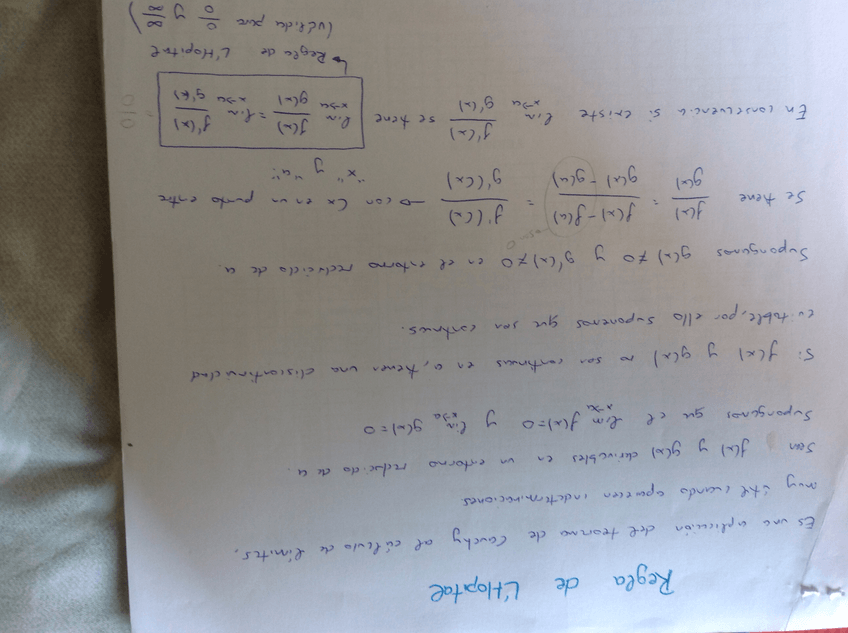 Regla de L'Hopital
Es una aplicación del teorema de Cauchy al cálculo de límites,
muy útil cuando aparecen indeterminaciones
Sean f(x) y g(x) derivables en un entorno reducido de a.
Supongamos que el lim x->a f(x)=0 y lim x->a g(x)=0
Si f(x) y g(x) no son continuas en a, tienen una discontinuidad
evitable, por ello suponemos que son continuas.
Supongamos g(x)≠0 y g'(x)≠0 en el entorno reducido de a.
Se tiene f(x)/g(x) = (f(x)-f(a))/(g(x)-g(a)) = f'(Cx)/g'(Cx) → con Cx en un punto entre
"x" y "a".
En consecuencia si existe lim x->a f'(x)/g'(x) se tiene lim x->a f(x)/g(x) = lim x->a f'(x)/g'(x) = 0/0
↳ Regla de L'Hopital
(válida para 0/0 y ∞/∞)